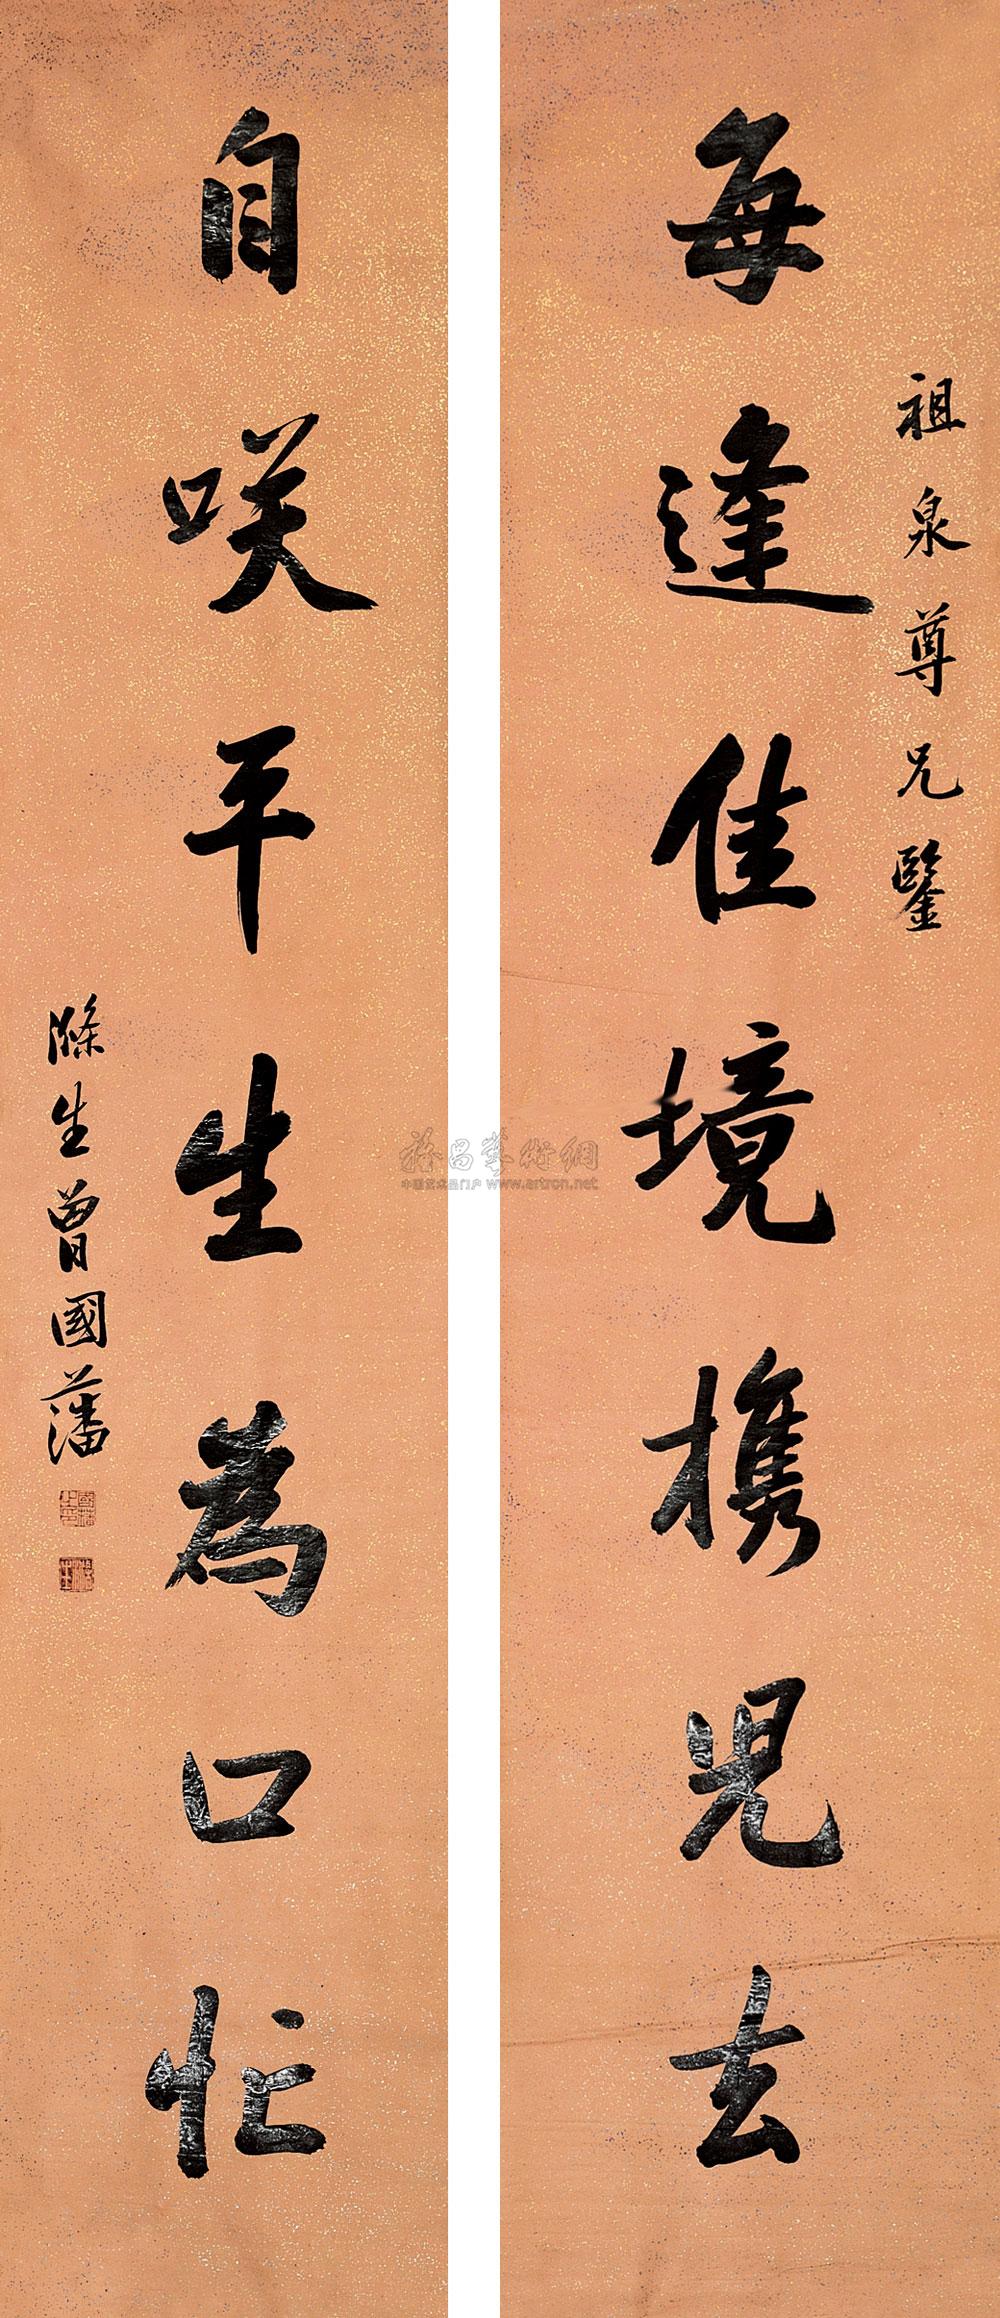 祖泉尊兄鑒
每逢佳境携兒去
自咲平生為口忙
滌生曾國藩
雅昌藝術網
中国艺术品门户 www.artron.net